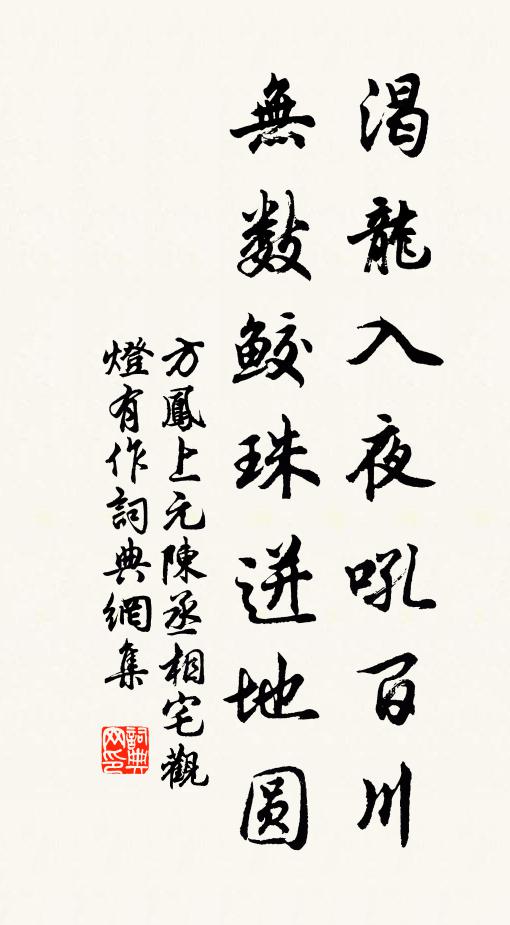 渴龍入夜吼百川
無數鮫珠迸地圓
方鳳上元陳丞相宅觀
燈有作詞典網集
詞典网印